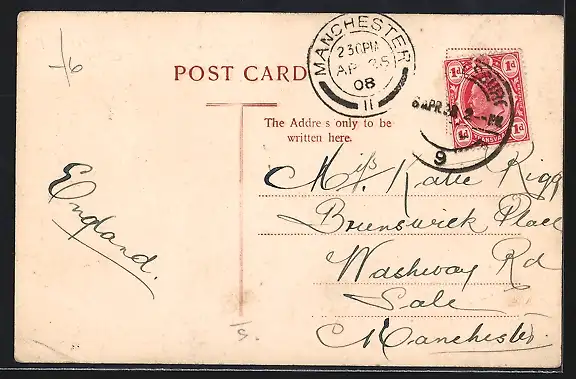 -/6
POST CARD
MANCHESTER
2 30PM
AP 25
08
11
1d 1d
1d 1d
TRANSVAAL
9
The Address only to be
written here.
England.
Miss Katie Rigg
Brunswick Place
Washway Rd
Sale
Manchester.